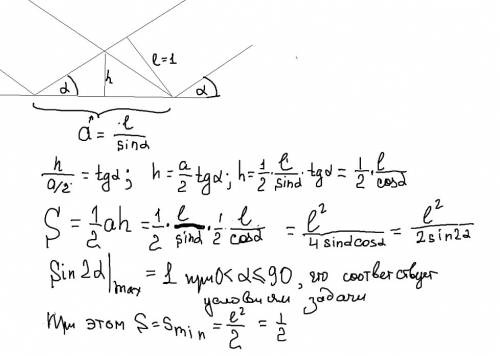 α h ℓ=1 α
a = ℓ/sinα
h/(a/2) = tgα; h = a/2 tgα; h = 1/2 · ℓ/sinα · tgα = 1/2 · ℓ/cosα
S = 1/2 ah = 1/2 · ℓ/sinα · 1/2 · ℓ/cosα = ℓ²/(4sinαcosα) = ℓ²/(2sin2α)
Sin2α|max = 1 при 0<α≤90, что соответствует
условиям задачи
При этом S = Smin = ℓ²/2 = 1/2